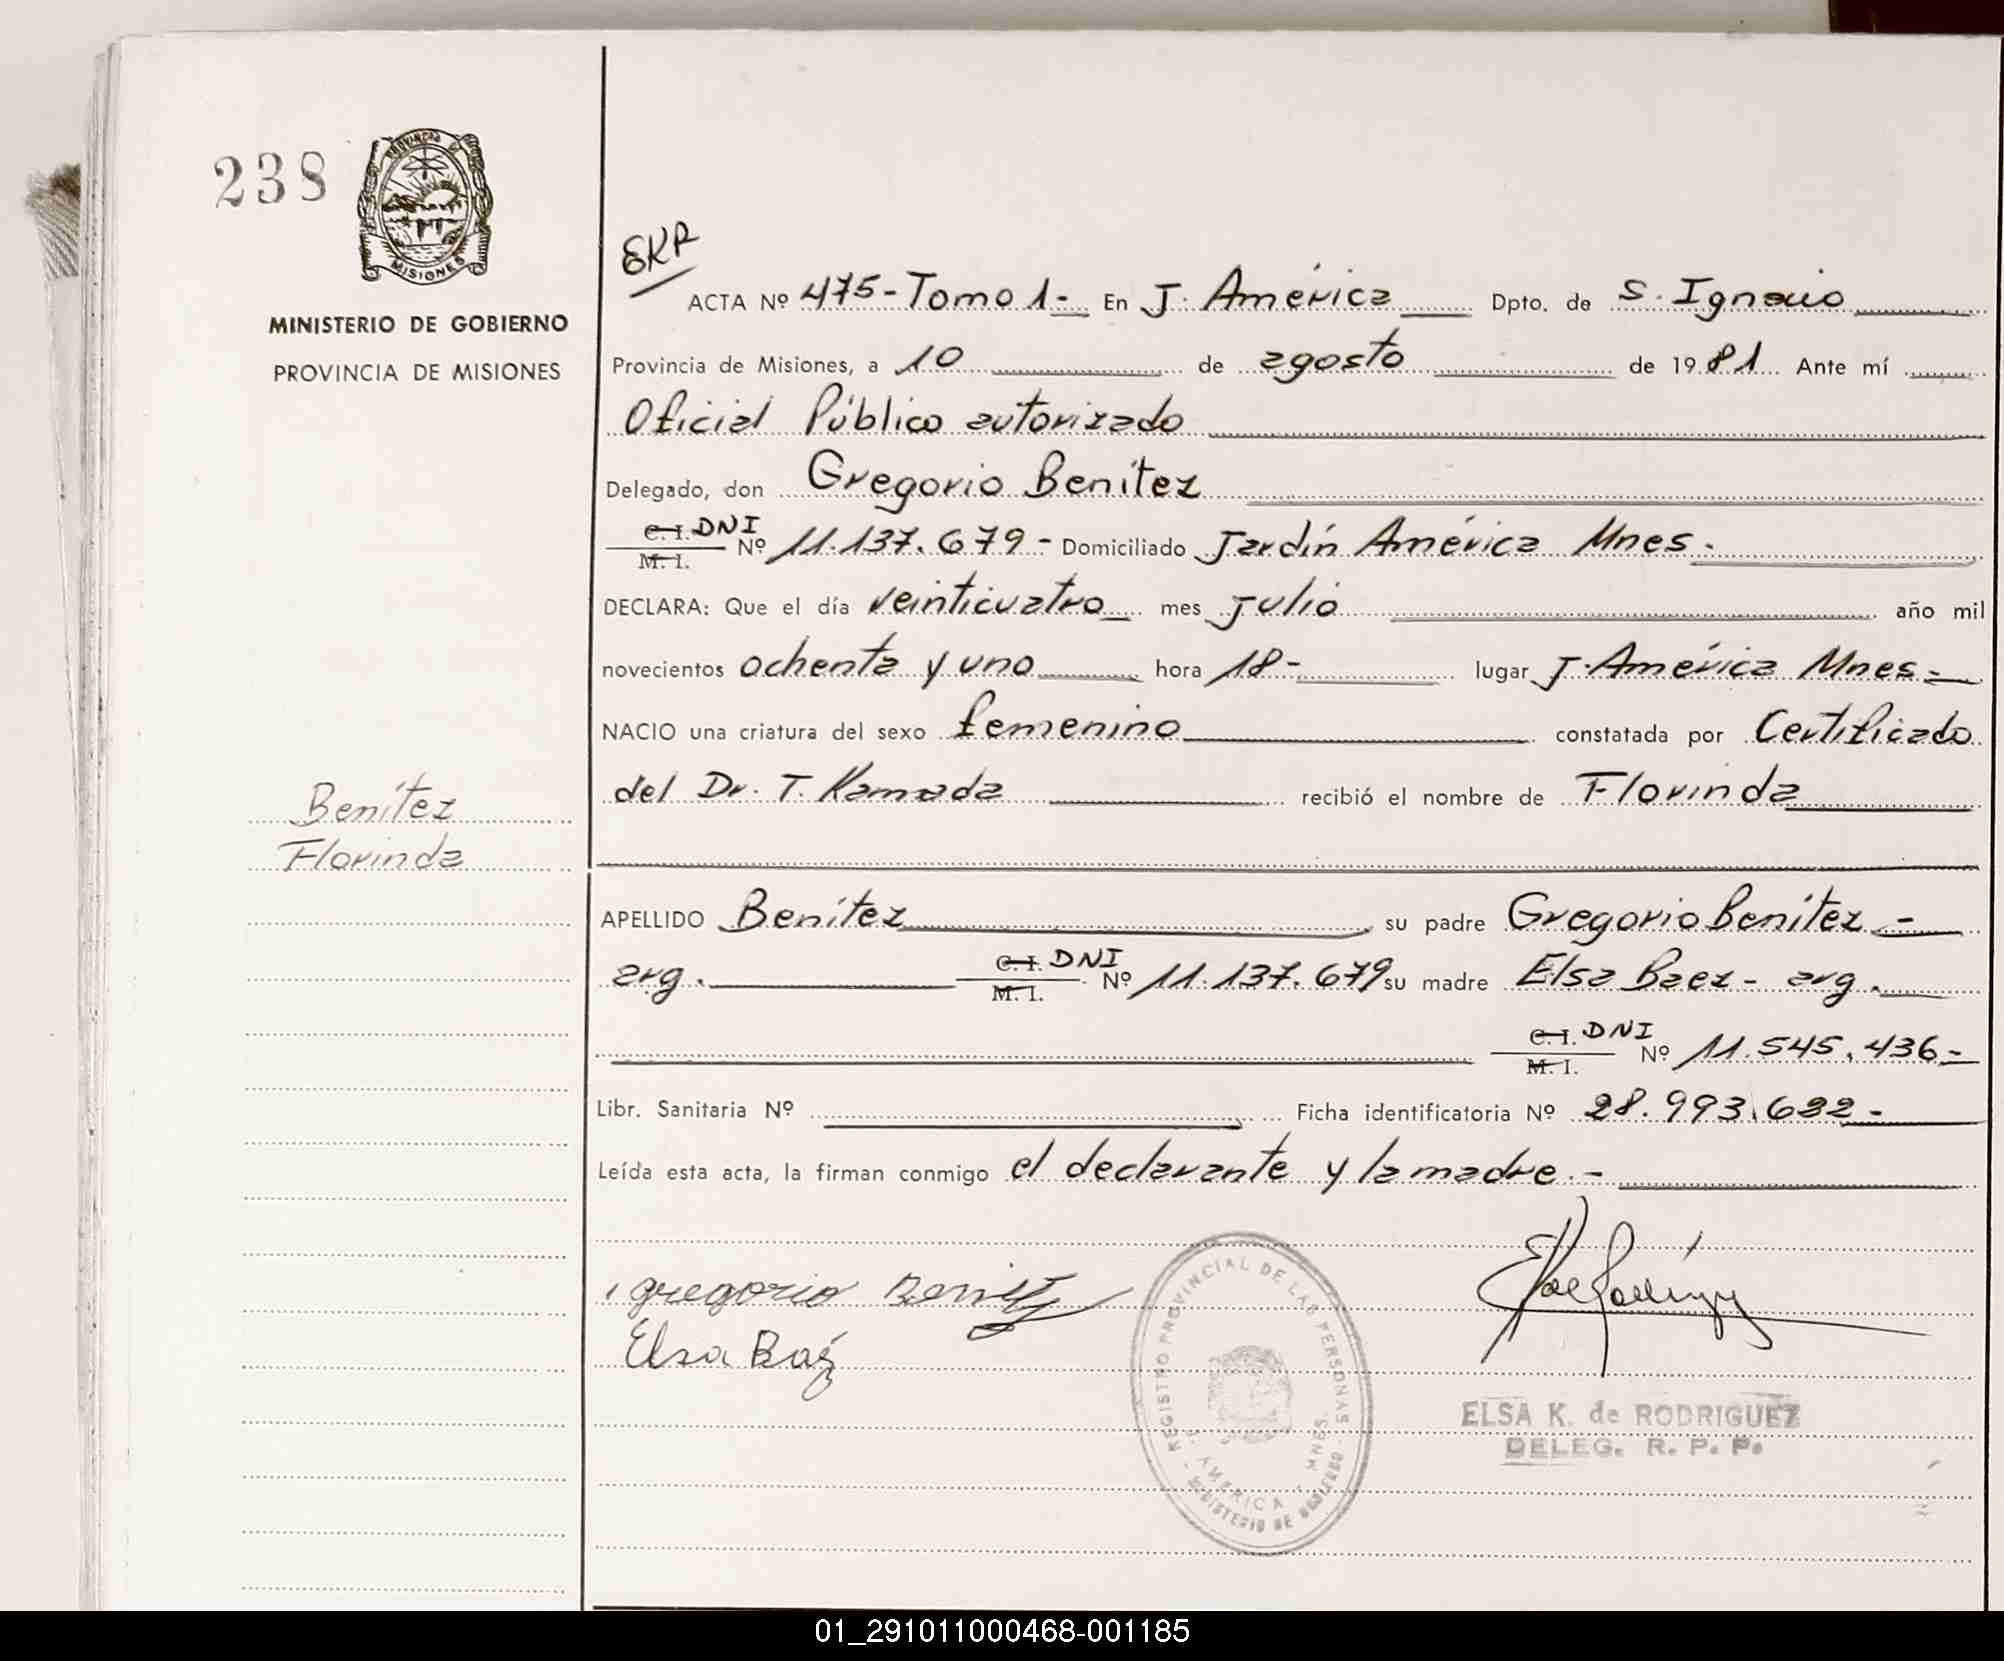 238
PROVINCIA DE
MISIONES
MINISTERIO DE GOBIERNO
PROVINCIA DE MISIONES
EKR
ACTA Nº 475-Tomo 1- En J. América Dpto. de S. Ignacio
Provincia de Misiones, a 10 de agosto de 1981 Ante mí
Oficial Público autorizado
Delegado, don Gregorio Benítez
C. I. DNI
M. I. Nº 11.137.679- Domiciliado Jardín América Mnes.
DECLARA: Que el día veinticuatro mes julio año mil
novecientos ochenta y uno hora 18- lugar J. América Mnes-
NACIO una criatura del sexo femenino constatada por Certificado
del Dr. T. Kamada recibió el nombre de Florinda
Benítez
Florinda
APELLIDO Benítez su padre Gregorio Benítez-
arg. C. I. DNI M. I. Nº 11.137.679 su madre Elsa Baez- arg.
C. I. DNI
M. I. Nº 11.545.436-
Libr. Sanitaria Nº Ficha identificatoria Nº 28.993.622-
Leída esta acta, la firman conmigo el declarante y la madre.-
gregorio Benitez
Elsa Baez
REGISTRO PROVINCIAL DE LAS PERSONAS
J. AMERICA - MNES.
MINISTERIO DE GOBIERNO
ELSA K. de RODRIGUEZ
DELEG. R. P. P.
01_291011000468-001185